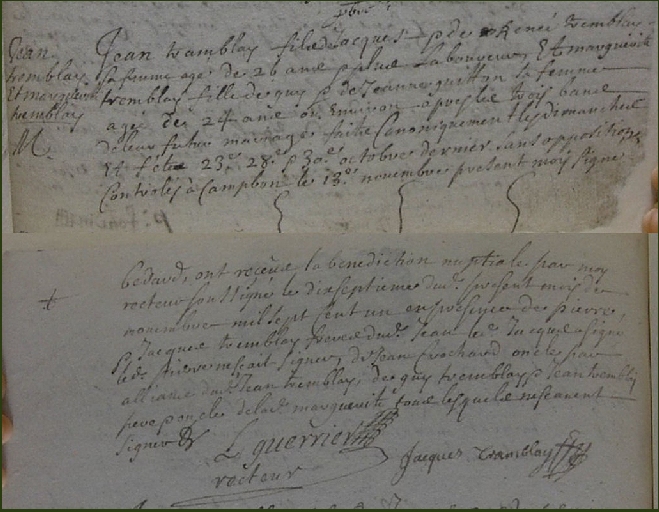 Jean
tremblay
Et marguerite
tremblay
M.
Jean tramblay fils de Jacques et de Renée tremblay
sa femme agé de 26 ans et plus laboureur, Et marguerite
tremblay fille de guy et de Jeanne guiton sa femme
agée de 24 ans ou Environ apres les trois bans
de leur futur mariage faits Canoniquement les dimanches
et fêtes 23.e 28.e et 30.e octobre dernier sans opposition
Controlés à Campbon le 13.e novembre present mois signé
bedard, ont receu la benediction nuptiale par moy
recteur soussigné le dixseptieme dud. present mois de
novembre mil sept cent un en presence de pierre,
et Jacques tremblay freres dud. Jean led. Jacques signe
led. pierre ne sait signer, de Jean frochard oncle par
alliance dud. Jean tremblay, de guy tremblay et Jean tremblay
pere et oncle de lad. marguerite tous lesquels ne scavent
signer &
L guerrier
recteur
Jacques tramblay